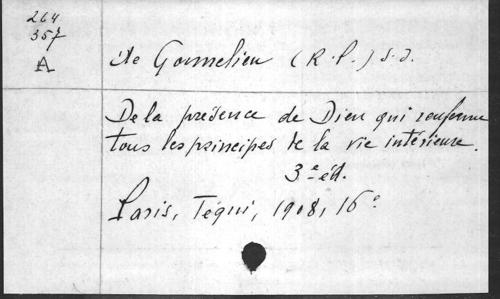 264
357
A
de Gonnelieu (R.P.) s.J.
De la présence de Dieu qui renferme
tous les principes de la vie intérieure.
3e éd.
Paris, Téqui, 1908, 16°